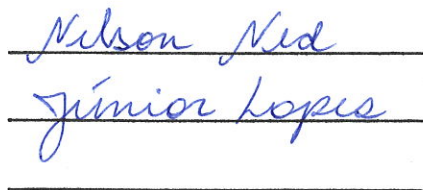 Nelson Ned
Júnior Lopes